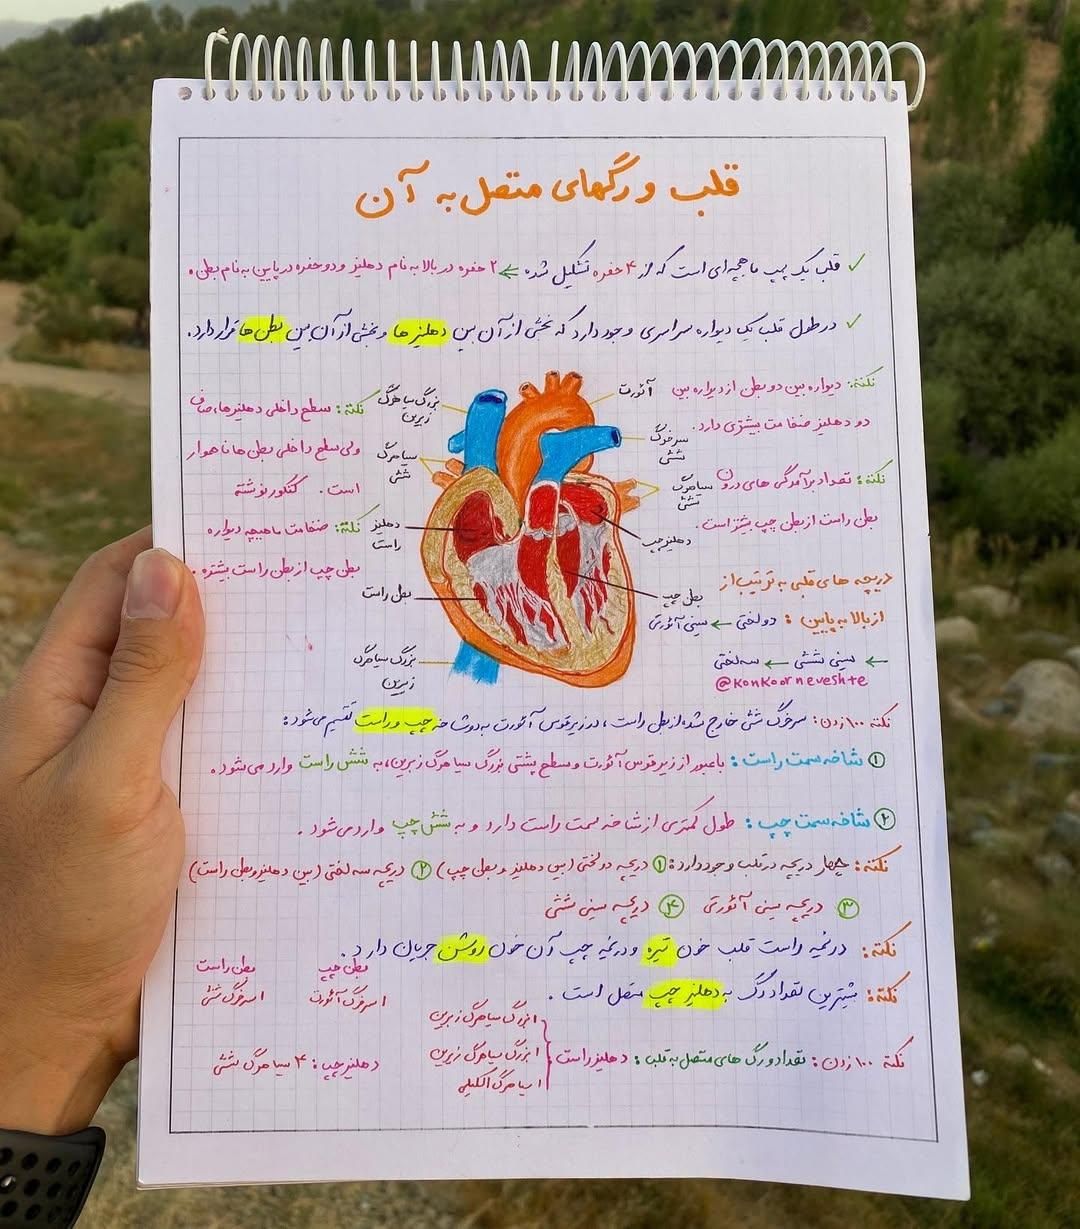 قلب و رگهای متصل به آن
✓ قلب یک پمپ ماهیچه‌ای است که از ۴ حفره تشکیل شده ← ۲ حفره در بالا به نام دهلیز و دو حفره در پایین به نام بطن.
✓ در طول قلب یک دیواره سراسری وجود دارد که بخشی از آن بین دهلیز ها و بخشی از آن بین بطن ها قرار دارد.
نکته: دیواره بین دو بطن از دیواره بین
دو دهلیز ضخامت بیشتری دارد.
نکته: تعداد برآمدگی های درون
بطن راست از بطن چپ بیشتر است.
دریچه های قلبی به ترتیب از
از بالا به پایین : دولختی ← سینی آئورتی
← سینی ششی ← سه لختی
@konkoorneveshte
آئورت
سرخرگ
ششی
سیاهرگ
ششی
دهلیز چپ
بطن چپ
بزرگ سیاهرگ
زبرین
سیاهرگ
ششی
دهلیز
راست
بطن راست
بزرگ سیاهرگ
زیرین
نکته: سطح داخلی دهلیزها، صاف
ولی سطح داخلی بطن ها ناهموار
است. کنکور نوشته
نکته: ضخامت ماهیچه دیواره
بطن چپ از بطن راست بیشتره.
نکته ۱۰۰ زدن: سرخرگ ششی خارج شده از بطن راست، در زیر قوس آئورت به دو شاخه چپ و راست تقسیم می‌شود:
① شاخه سمت راست: با عبور از زیر قوس آئورت و سطح پشتی بزرگ سیاهرگ زبرین، به شش راست وارد می‌شود.
② شاخه سمت چپ: طول کمتری از شاخه سمت راست دارد و به شش چپ وارد می‌شود.
نکته: چهار دریچه در قلب وجود دارد: ① دریچه دولختی (بین دهلیز و بطن چپ) ② دریچه سه لختی (بین دهلیز و بطن راست)
③ دریچه سینی آئورتی ④ دریچه سینی ششی
نکته: در نیمه راست قلب خون تیره و در نیمه چپ آن خون روشن جریان دارد.
نکته: بیشترین تعداد رگ به دهلیز چپ متصل است.
نکته ۱۰۰ زدن: تعداد رگ های متصل به قلب: دهلیز راست
۱ بزرگ سیاهرگ زبرین
۱ بزرگ سیاهرگ زیرین
۱ سیاهرگ اکلیلی
دهلیز چپ: ۴ سیاهرگ ششی
بطن چپ
۱ سرخرگ آئورت
بطن راست
۱ سرخرگ ششی